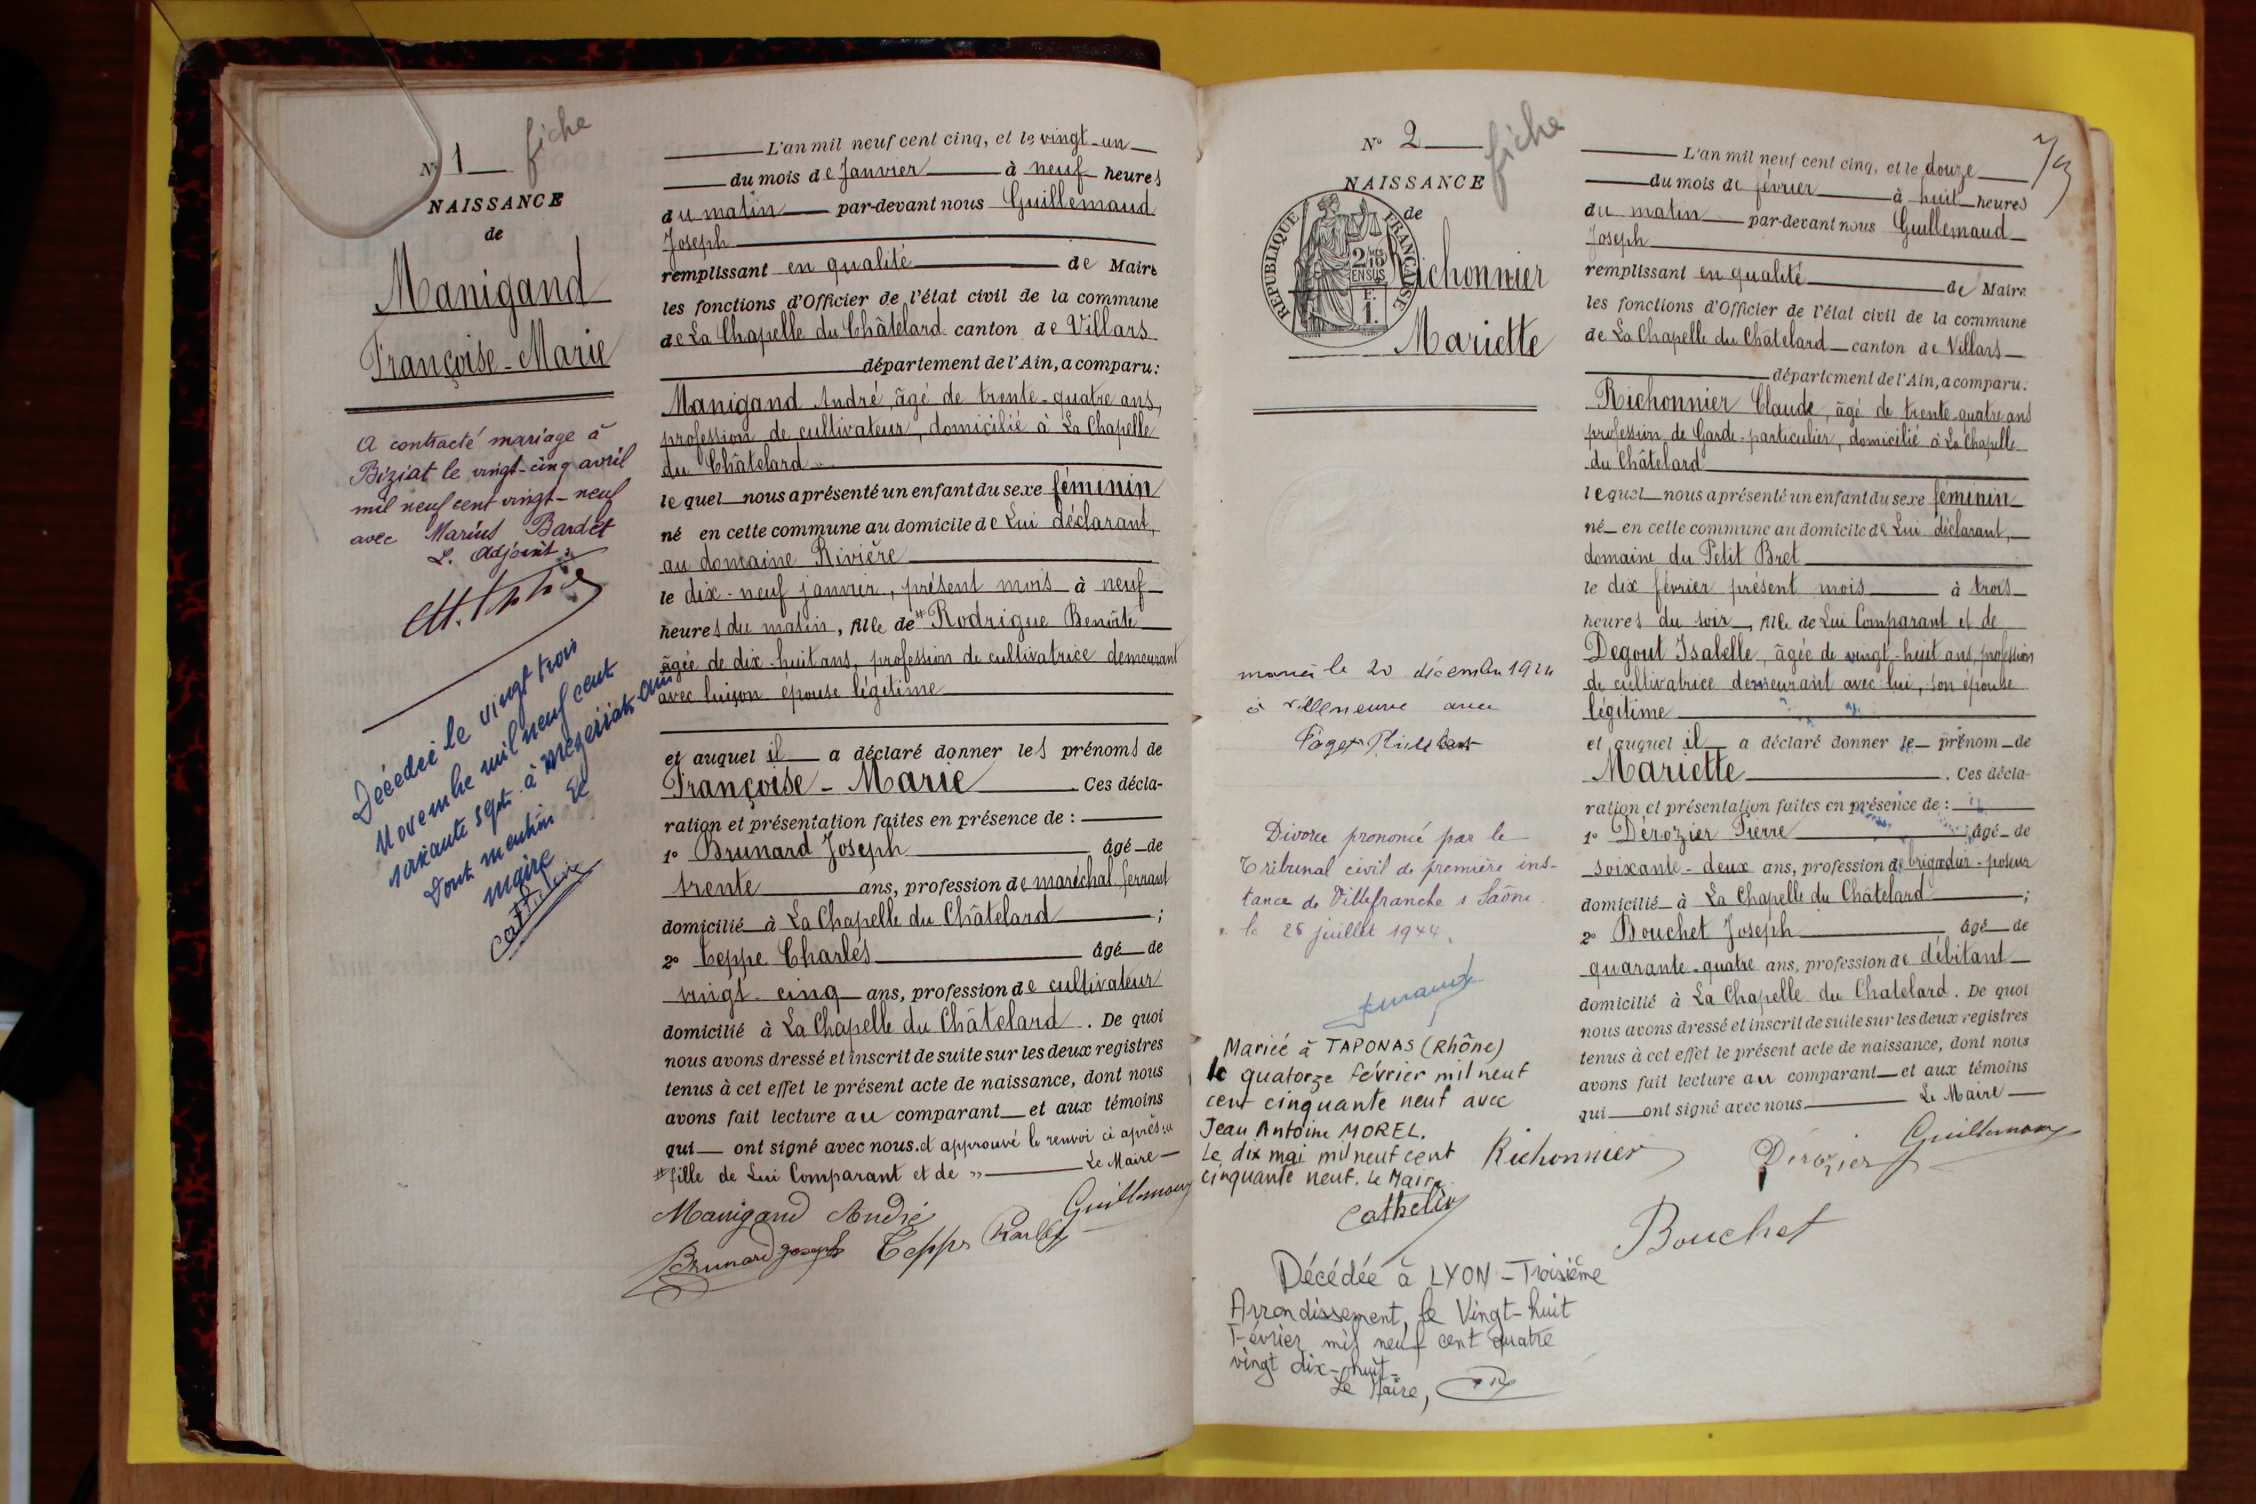 N° 1
fiche
NAISSANCE
de
Manigand
Françoise-Marie
A contracté mariage à
Biziat le vingt-cinq avril
mil neuf cent vingt-neuf
avec Marius Bardet
L. Adjoint :
Décédée le vingt trois
Novembre mil neuf cent
soixante sept à Mézériat Ain
Dont mention
maire
Cathelin
L'an mil neuf cent cinq, et le vingt-un
du mois de Janvier à neuf heures
du matin par-devant nous Guillemaud
Joseph
remplissant en qualité de Maire
les fonctions d'Officier de l'état civil de la commune
de La Chapelle du Châtelard canton de Villars
département de l'Ain, a comparu :
Manigand André, âgé de trente-quatre ans,
profession de cultivateur, domicilié à La Chapelle
du Châtelard
lequel nous a présenté un enfant du sexe féminin
né en cette commune au domicile de Lui déclarant,
au domaine Rivière
le dix-neuf janvier, présent mois à neuf
heures du matin, fille de # Rodrigue Benoîte
âgée de dix-huit ans, profession de cultivatrice demeurant
avec lui, son épouse légitime
et auquel il a déclaré donner les prénoms de
Françoise - Marie. Ces décla-
ration et présentation faites en présence de :
1° Brunard Joseph âgé de
trente ans, profession de maréchal ferrant
domicilié à La Chapelle du Châtelard ;
2° Teppe Charles âgé de
vingt-cinq ans, profession de cultivateur
domicilié à La Chapelle du Châtelard. De quoi
nous avons dressé et inscrit de suite sur les deux registres
tenus à cet effet le présent acte de naissance, dont nous
avons fait lecture au comparant et aux témoins
qui ont signé avec nous. et approuvé le renvoi ci après :
# fille de Lui Comparant et de » Le Maire
Manigand André Guillemaud
Brunard Joseph Teppe Charles
N° 2
fiche
NAISSANCE
de
REPUBLIQUE FRANÇAISE
EN SUS
Richonnier
Mariette
mariée le 20 décembre 1924
à Villeneuve avec
Divorce prononcé par le
Tribunal civil de première ins-
tance de Villefranche s Saône
le 26 juillet 1944.
Mariée à TAPONAS (Rhône)
le quatorze février mil neuf
cent cinquante neuf avec
Jean Antoine MOREL.
Le dix mai mil neuf cent
cinquante neuf. Le Maire
Cathelin
Décédée à LYON - Troisième
Arrondissement, le Vingt-huit
Février mil neuf cent quatre
vingt dix-huit
Le Maire,
L'an mil neuf cent cinq, et le douze
du mois de février à huit heures
du matin par-devant nous Guillemaud
Joseph
remplissant en qualité de Maire
les fonctions d'Officier de l'état civil de la commune
de La Chapelle du Châtelard canton de Villars
département de l'Ain, a comparu :
Richonnier Claude, âgé de trente-quatre ans
profession de Garde-particulier, domicilié à La Chapelle
du Châtelard
lequel nous a présenté un enfant du sexe féminin
né en cette commune au domicile de Lui déclarant,
domaine du Petit Bret
le dix février présent mois à trois
heures du soir, fille de Lui Comparant et de
Degout Isabelle, âgée de vingt-huit ans, profession
de cultivatrice demeurant avec lui, son épouse
légitime
et auquel il a déclaré donner le prénom de
Mariette. Ces décla-
ration et présentation faites en présence de :
1° Dérozier Pierre âgé de
soixante-deux ans, profession de brigadier-poseur
domicilié à La Chapelle du Châtelard ;
2° Bouchet Joseph âgé de
quarante-quatre ans, profession de débitant
domicilié à La Chapelle du Chatelard. De quoi
nous avons dressé et inscrit de suite sur les deux registres
tenus à cet effet le présent acte de naissance, dont nous
avons fait lecture au comparant et aux témoins
qui ont signé avec nous Le Maire
Richonnier Dérozier Guillemaud
Bouchet